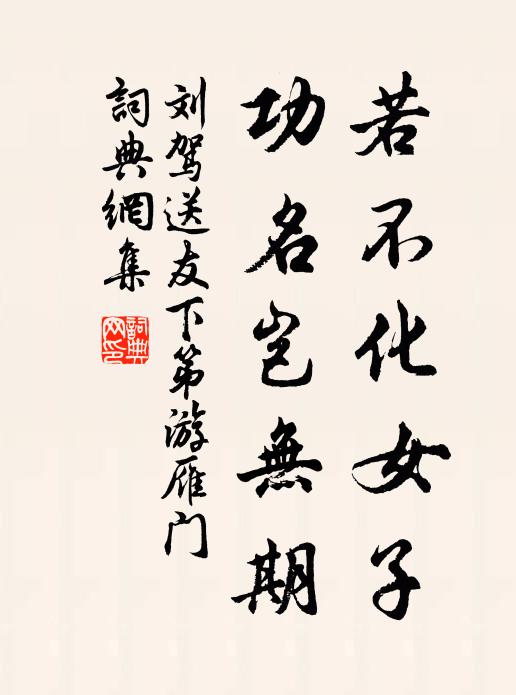 若不化女子
功名岂無期
刘驾送友下第游雁门
詞典網集
詞典網印